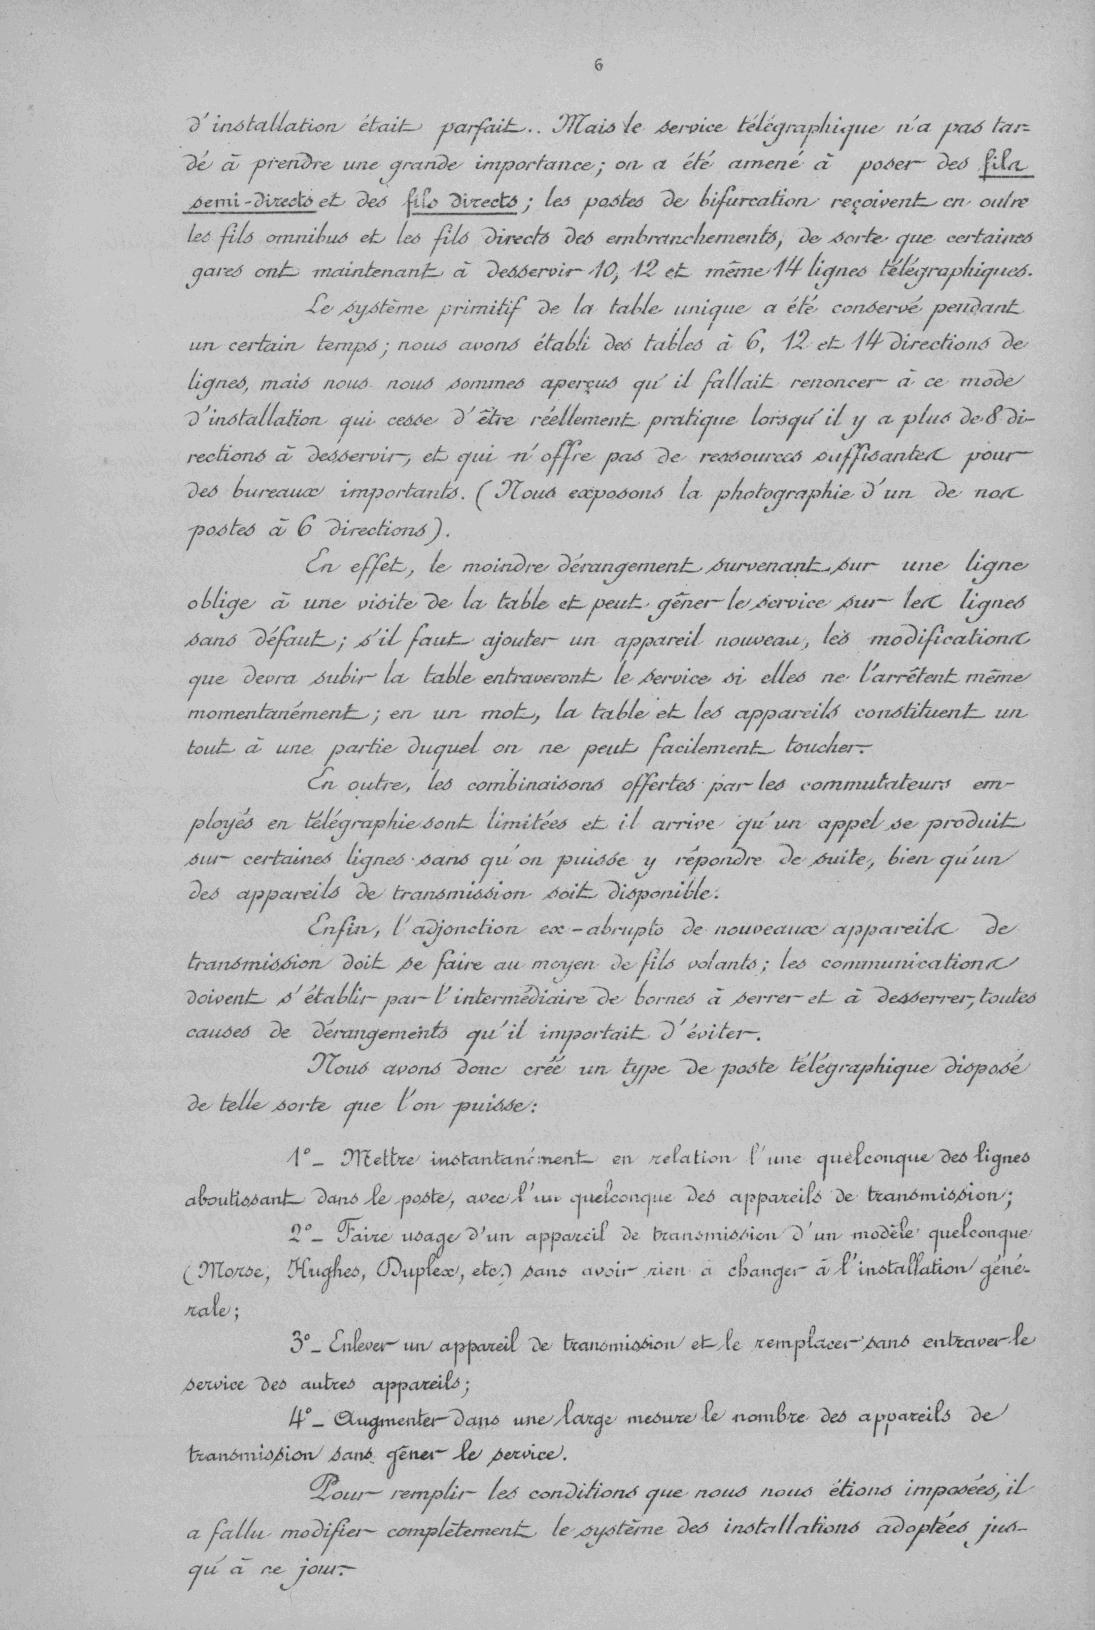 6
d'installation était parfait.. Mais le service télégraphique n'a pas tar=
dé à prendre une grande importance; on a été amené à poser des fils
semi-directs et des fils directs; les postes de bifurcation reçoivent en outre
les fils omnibus et les fils directs des embranchements, de sorte que certaines
gares ont maintenant à desservir 10, 12 et même 14 lignes télégraphiques.
Le système primitif de la table unique a été conservé pendant
un certain temps; nous avons établi des tables à 6, 12 et 14 directions de
lignes, mais nous nous sommes aperçus qu'il fallait renoncer à ce mode
d'installation qui cesse d'être réellement pratique lorsqu'il y a plus de 8 di-
rections à desservir, et qui n'offre pas de ressources suffisantes pour
des bureaux importants. (Nous exposons la photographie d'un de nos
postes à 6 directions).
En effet, le moindre dérangement survenant sur une ligne
oblige à une visite de la table et peut gêner le service sur les lignes
sans défaut; s'il faut ajouter un appareil nouveau, les modifications
que devra subir la table entraveront le service si elles ne l'arrêtent même
momentanément; en un mot, la table et les appareils constituent un
tout à une partie duquel on ne peut facilement toucher.
En outre, les combinaisons offertes par les commutateurs em-
ployés en télégraphie sont limitées et il arrive qu'un appel se produit
sur certaines lignes sans qu'on puisse y répondre de suite, bien qu'un
des appareils de transmission soit disponible.
Enfin, l'adjonction ex-abrupto de nouveaux appareils de
transmission doit se faire au moyen de fils volants; les communications
doivent s'établir par l'intermédiaire de bornes à serrer et à desserrer, toutes
causes de dérangements qu'il importait d'éviter.
Nous avons donc créé un type de poste télégraphique disposé
de telle sorte que l'on puisse:
1°_ Mettre instantanément en relation l'une quelconque des lignes
aboutissant dans le poste, avec l'un quelconque des appareils de transmission;
2°_ Faire usage d'un appareil de transmission d'un modèle quelconque
(Morse, Hughes, Duplex, etc.) sans avoir rien à changer à l'installation géné-
rale;
3°_ Enlever un appareil de transmission et le remplacer sans entraver le
service des autres appareils;
4°_ Augmenter dans une large mesure le nombre des appareils de
transmission sans gêner le service.
Pour remplir les conditions que nous nous étions imposées, il
a fallu modifier complètement le système des installations adoptées jus-
qu'à ce jour.